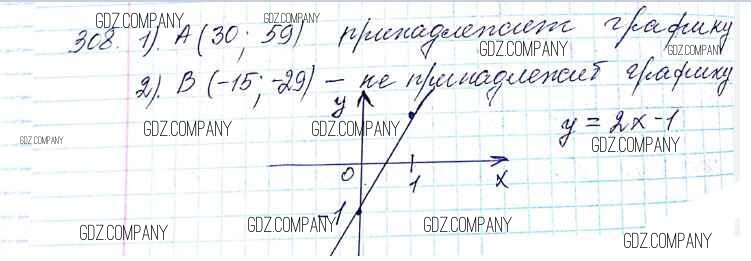 GDZ.COMPANY GDZ.COMPANY
308. 1). A (30; 59) принадлежит графику
GDZ.COMPANY GDZ.COMPANY
2). B (-15; -29) – не принадлежит графику
y
GDZ.COMPANY GDZ.COMPANY y = 2x-1
GDZ.COMPANY GDZ.COMPANY
0 1 x
-1
GDZ.COMPANY GDZ.COMPANY GDZ.COMPANY
GDZ.COMPANY